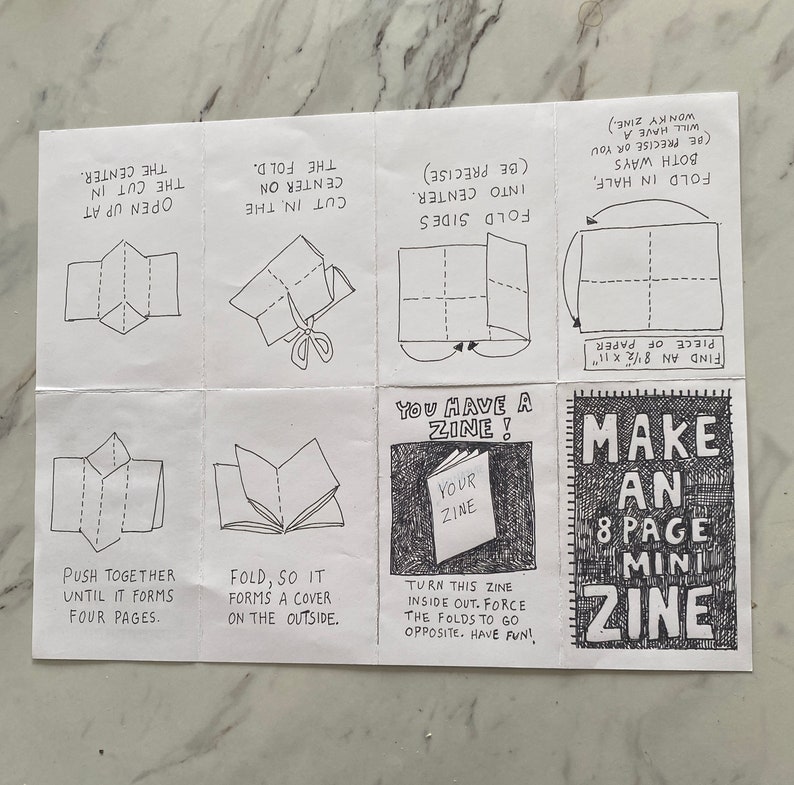 MAKE
AN
8 PAGE
MINI
ZINE
FIND AN 8½" X 11"
PIECE OF PAPER
FOLD IN HALF,
BOTH WAYS
(BE PRECISE OR YOU
WILL HAVE A
WONKY ZINE.)
FOLD SIDES
INTO CENTER.
(BE PRECISE)
CUT IN THE
CENTER ON
THE FOLD.
OPEN UP AT
THE CUT IN
THE CENTER.
PUSH TOGETHER
UNTIL IT FORMS
FOUR PAGES.
FOLD, SO IT
FORMS A COVER
ON THE OUTSIDE.
YOU HAVE A
ZINE!
YOUR
ZINE
TURN THIS ZINE
INSIDE OUT. FORCE
THE FOLDS TO GO
OPPOSITE. HAVE FUN!